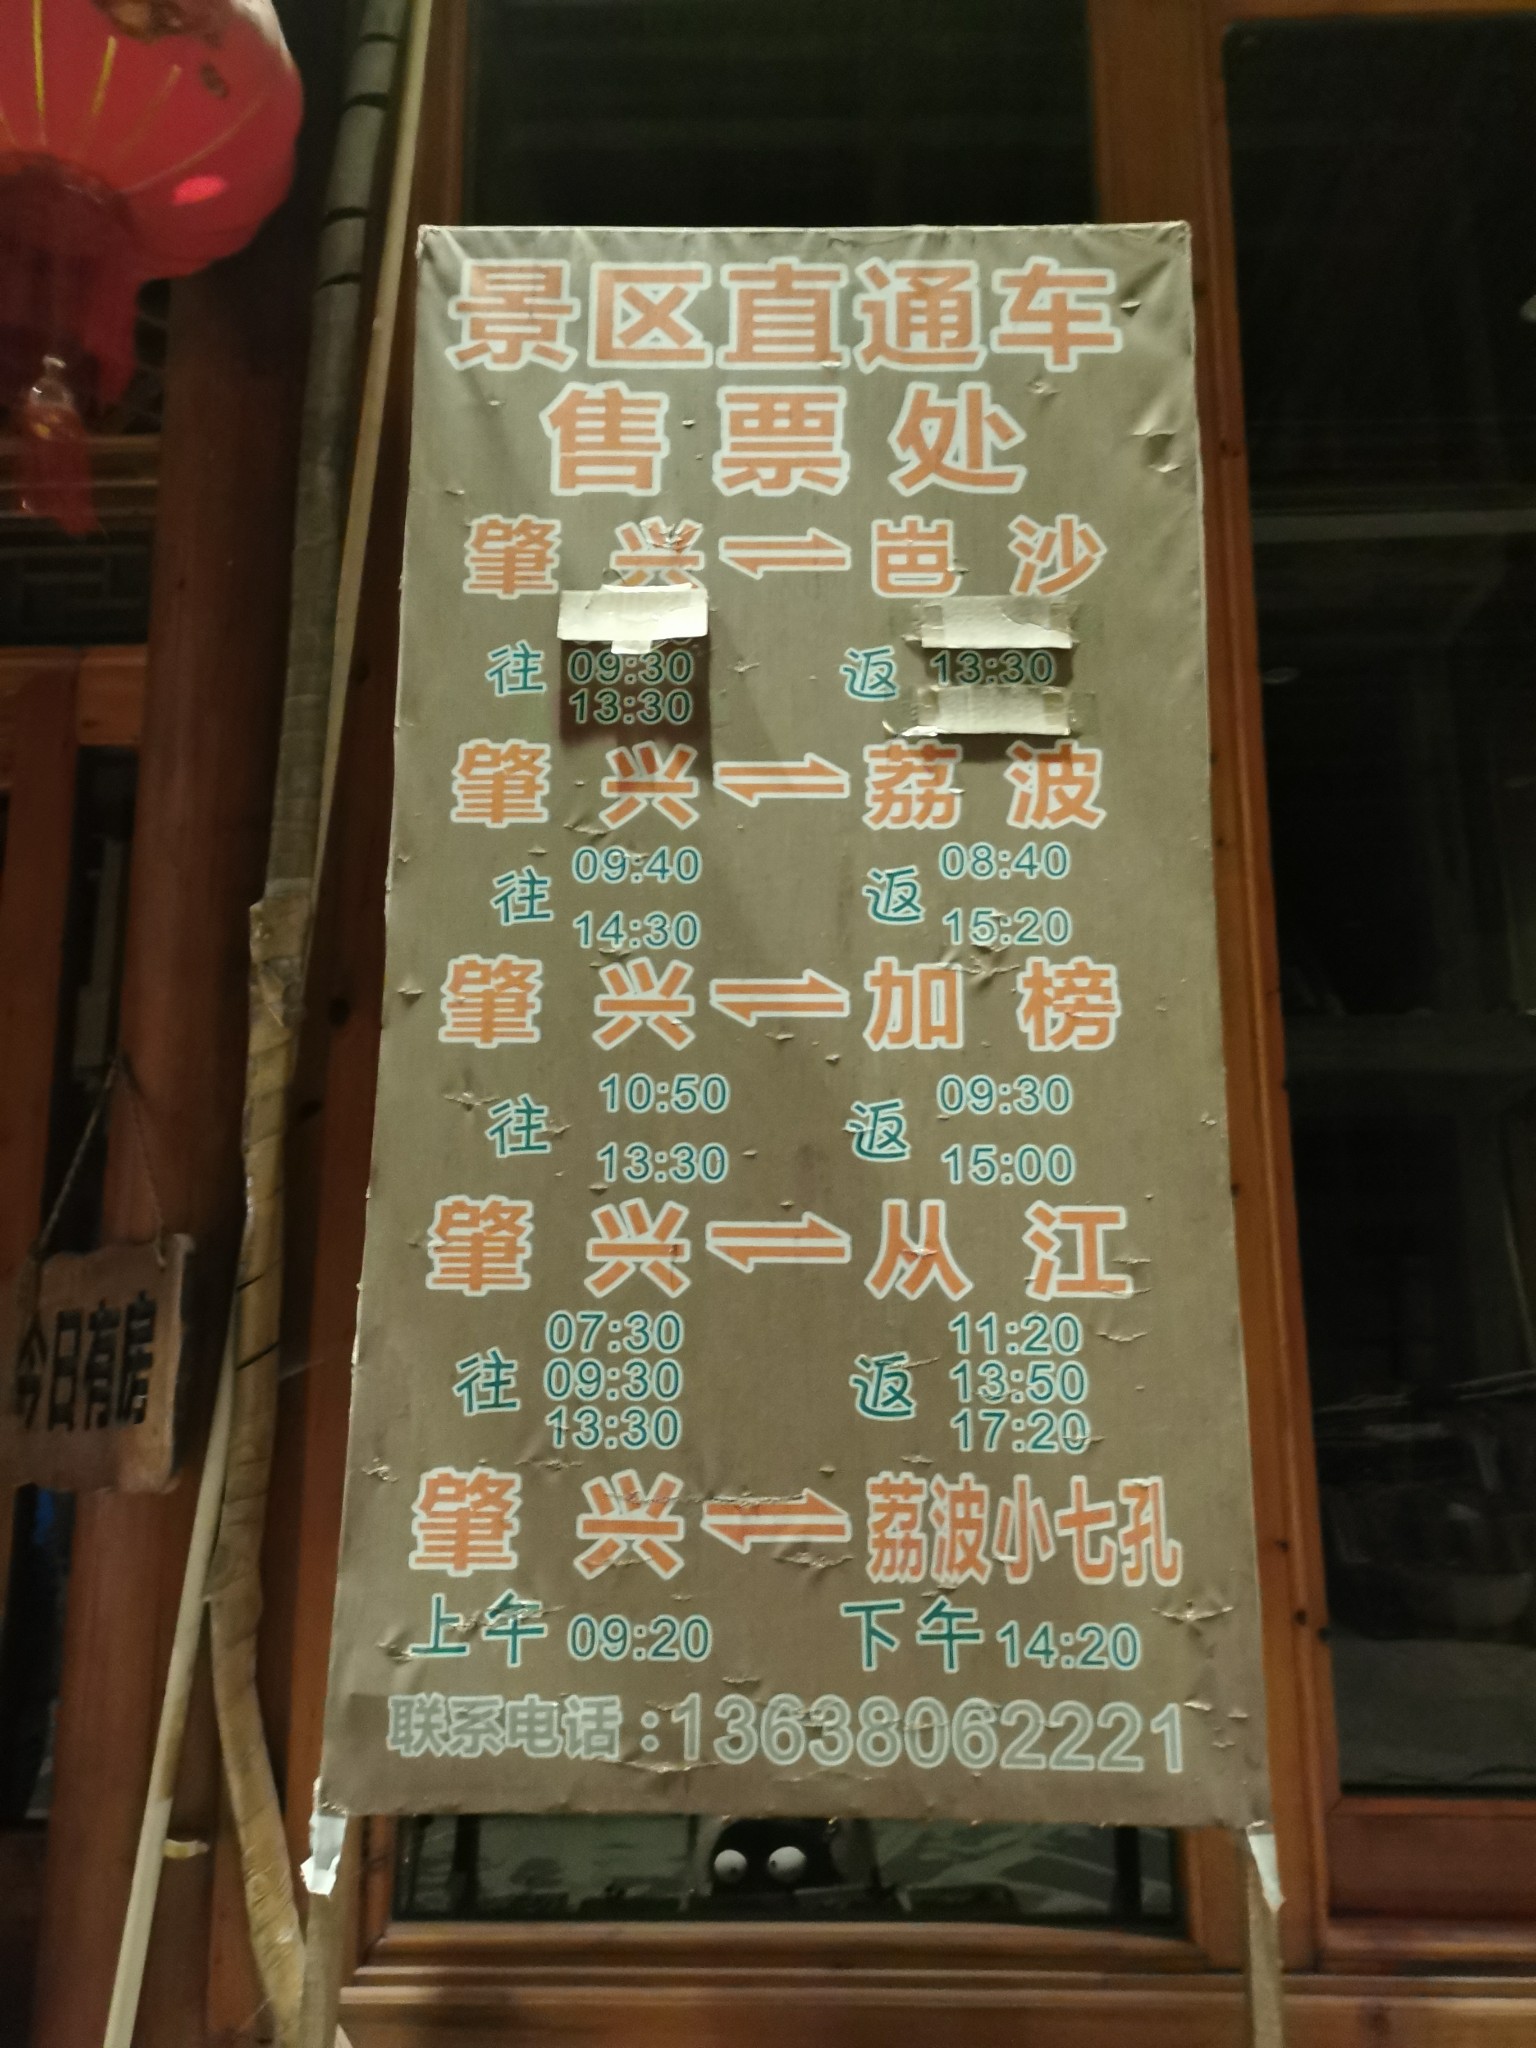 景区直通车
售票处
肇兴⇌岜沙
往 09:30 返 13:30
13:30
肇兴⇌荔波
09:40 08:40
往 返
14:30 15:20
肇兴⇌加榜
10:50 09:30
往 返
13:30 15:00
肇兴⇌从江
07:30 11:20
往 09:30 返 13:50
13:30 17:20
肇兴⇌荔波小七孔
上午 09:20 下午 14:20
联系电话:13638062221
今日有房